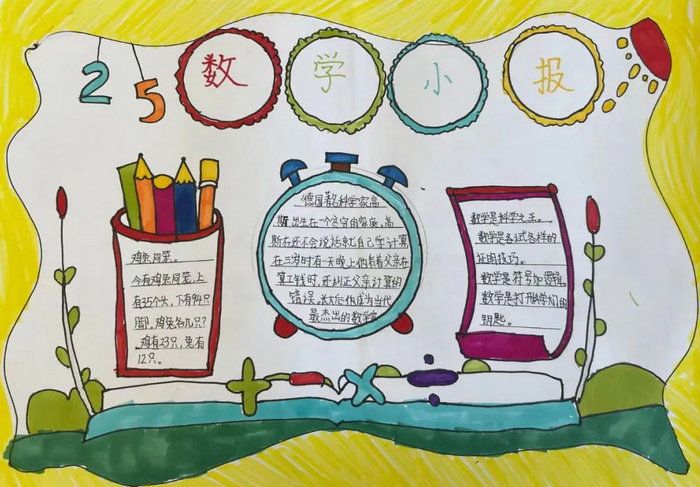 2 5
数学小报
鸡兔同笼。
今有鸡兔同笼,上
有35个头,下有94只
脚。鸡兔各几只?
鸡有23只,兔有
12只。
德国著名科学家高
斯出生在一个贫穷的家庭。高
斯在还不会说话就自己学计算
在三岁时有一天晚上他看着父亲在
算工钱时,还纠正父亲计算的
错误。长大后他成为当代
最杰出的数学家
数学是科学之王。
数学是各式各样的
证明技巧。
数学是符号加逻辑。
数学是打开科学大门的
钥匙。